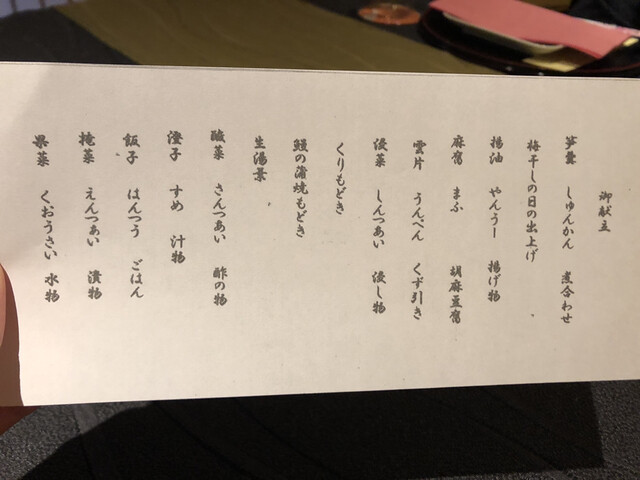 御献立
笋羹 しゅんかん 煮合わせ
梅干しの日の出上げ
揚油 やんうー 揚げ物
麻腐 まふ 胡麻豆腐
雲片 うんぺん くず引き
浸菜 しんつあい 浸し物
くりもどき
鰻の蒲焼もどき
生湯葉
酸菜 さんつあい 酢の物
澄子 すめ 汁物
飯子 はんつう ごはん
掩菜 えんつぁい 漬物
果菜 くおうさい 水物